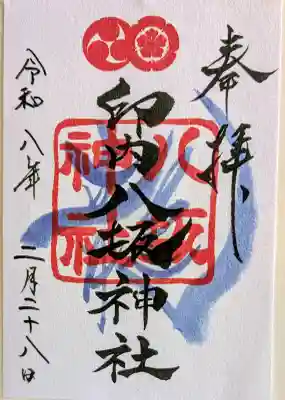 奉拝
印内八坂神社
八坂
神社
令和八年 二月二十八日